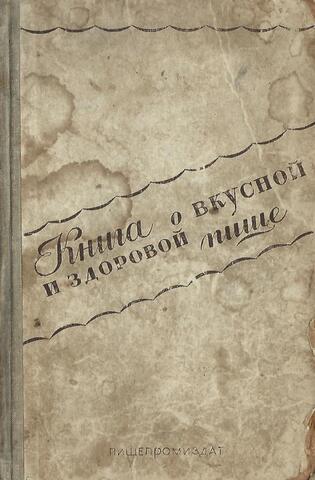 Книга о вкусной
и здоровой пище
ПИЩЕПРОМИЗДАТ